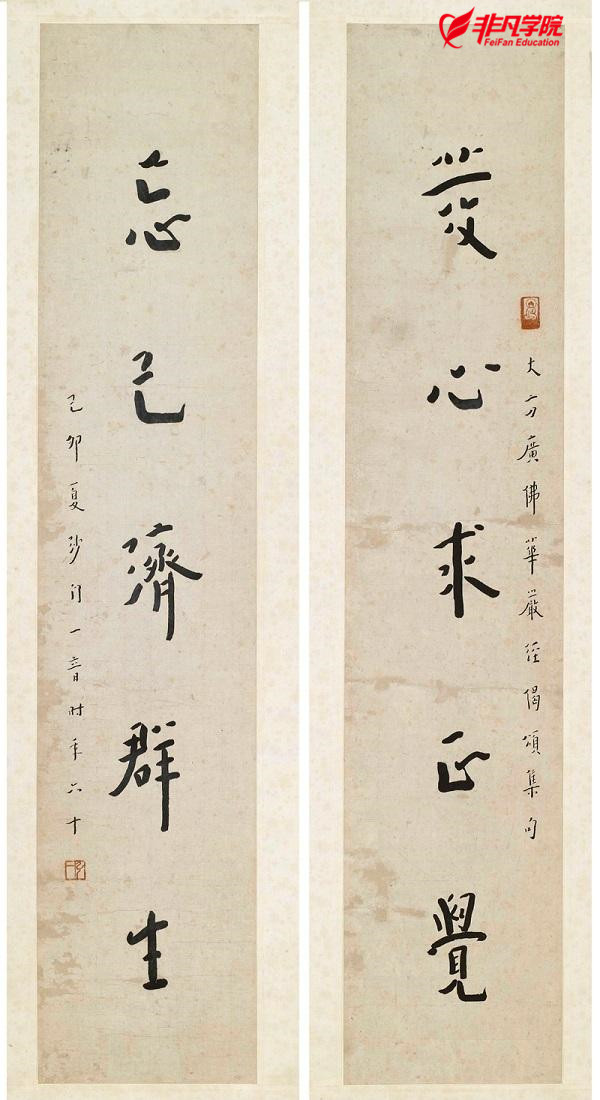 非凡学院
FeiFan Education
發心求正覺
大方廣佛華嚴經偈頌集句
忘己濟群生
己卯夏沙门一音时年六十